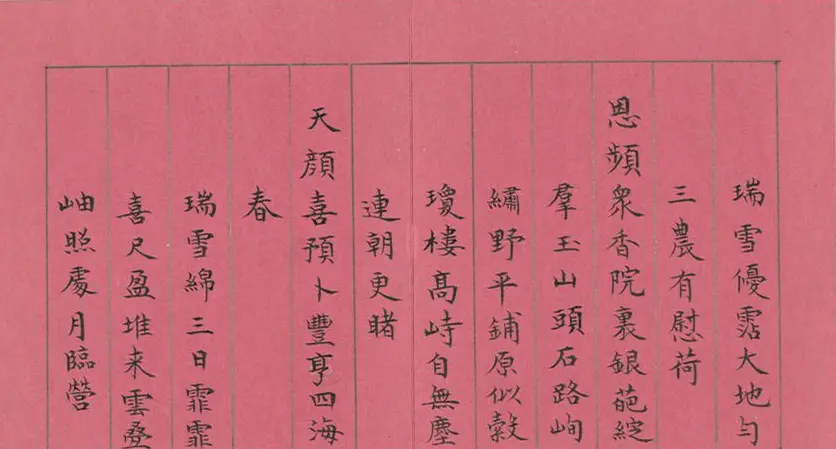 瑞雪優霑大地勻
三農有慰荷
恩頻衆香院裏銀葩綻
羣玉山頭石路峋
繡野平鋪原似縠
瓊樓髙峙自無塵
連朝更睹
天顔喜預卜豐亨四海
春
瑞雪綿三日霏霏
喜尺盈堆来雲疊
岫照處月臨營